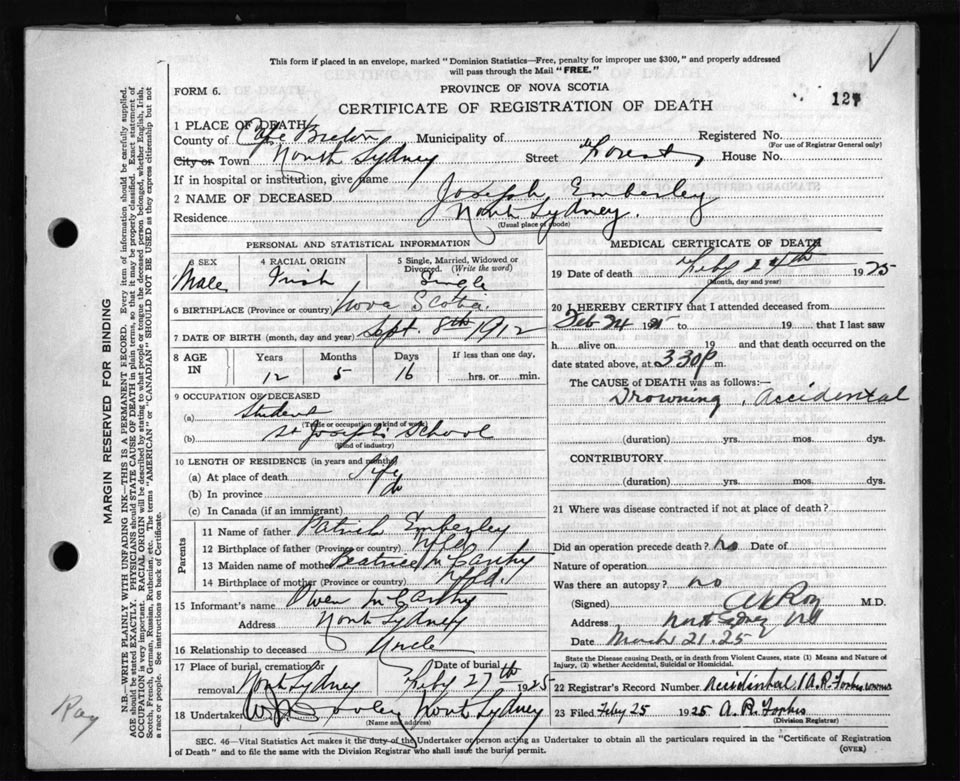 This form if placed in an envelope, marked "Dominion Statistics—Free, penalty for improper use $300," and properly addressed
will pass through the Mail "FREE."
FORM 6.
PROVINCE OF NOVA SCOTIA
CERTIFICATE OF REGISTRATION OF DEATH
127
1 PLACE OF DEATH
County of Cape Breton Municipality of Registered No.
(For use of Registrar General only)
City or Town North Sydney Street Forest House No.
If in hospital or institution, give name
2 NAME OF DECEASED Joseph Emberley
Residence North Sydney.
(Usual place of abode)
PERSONAL AND STATISTICAL INFORMATION
3 SEX 4 RACIAL ORIGIN 5 Single, Married, Widowed or
Divorced. (Write the word)
Male Irish Single
6 BIRTHPLACE (Province or country) Nova Scotia
7 DATE OF BIRTH (month, day and year) Sept. 8th 1912
8 AGE IN Years Months Days If less than one day,
12 5 16 hrs. or min.
9 OCCUPATION OF DECEASED
(a) Student
(Trade or occupation or kind of work)
(b) St Josephs School
(Kind of industry)
10 LENGTH OF RESIDENCE (in years and months)
(a) At place of death Life
(b) In province do
(c) In Canada (if an immigrant)
Parents
11 Name of father Patrick Emberley
12 Birthplace of father (Province or country) Nfld
13 Maiden name of mother Beatrice McCarthy
14 Birthplace of mother (Province or country) Nfld.
15 Informant's name Owen McCarthy
Address North Sydney
16 Relationship to deceased Uncle
17 Place of burial, cremation or Date of burial
removal North Sydney Feby 27th 1925
18 Undertaker North Sydney
(Name and address)
MEDICAL CERTIFICATE OF DEATH
19 Date of death Feby 24th 1925
(Month, day and year)
20 I HEREBY CERTIFY that I attended deceased from
Feb 24 19 to 19 that I last saw
h alive on 19 and that death occurred on the
date stated above, at 3 30 p m.
The CAUSE of DEATH was as follows:—
Drowning, Accidental
(duration) yrs. mos. dys.
CONTRIBUTORY
(duration) yrs. mos. dys.
21 Where was disease contracted if not at place of death?
Did an operation precede death? no Date of
Nature of operation
Was there an autopsy? no
(Signed) Roy M.D.
Address North Sydney NS
Date March 21. 25
State the Disease causing Death, or in death from Violent Causes, state (1) Means and Nature of
Injury, (2) whether Accidental, Suicidal or Homicidal.
22 Registrar's Record Number Accidental A.R. Forbes
23 Filed Feby 25 1925 A.R. Forbes
(Division Registrar)
SEC. 46—Vital Statistics Act makes it the duty of the Undertaker or person acting as Undertaker to obtain all the particulars required in the "Certificate of Registration
of Death" and to file the same with the Division Registrar who shall issue the burial permit.
(OVER)
MARGIN RESERVED FOR BINDING
N.B.—WRITE PLAINLY WITH UNFADING INK—THIS IS A PERMANENT RECORD. Every item of information should be carefully supplied.
AGE should be stated EXACTLY. PHYSICIANS should STATE CAUSE OF DEATH in plain terms, so that it may be properly classified. Exact statement of
OCCUPATION is very important. RACIAL ORIGIN will be described by stating to what people or tongue the deceased person belonged, whether English, Irish,
Scotch, French, German, Russian, Ruthenian, etc. The terms "AMERICAN" or "CANADIAN" SHOULD NOT BE USED as they express citizenship but not
a race or people. See instructions on back of Certificate.
Ray